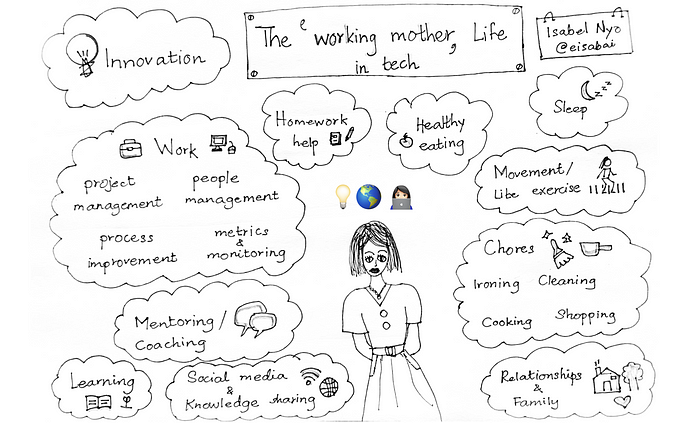 The 'working mother' Life
in tech
Isabel Nyo
@eisabai
Innovation
Homework
help
Healthy
eating
Sleep
Work
project
management
people
management
process
improvement
metrics
&
monitoring
Movement/
Like exercise
Chores
Ironing
Cleaning
Cooking
Shopping
Mentoring /
Coaching
Learning
Social media
&
Knowledge sharing
Relationships
&
Family